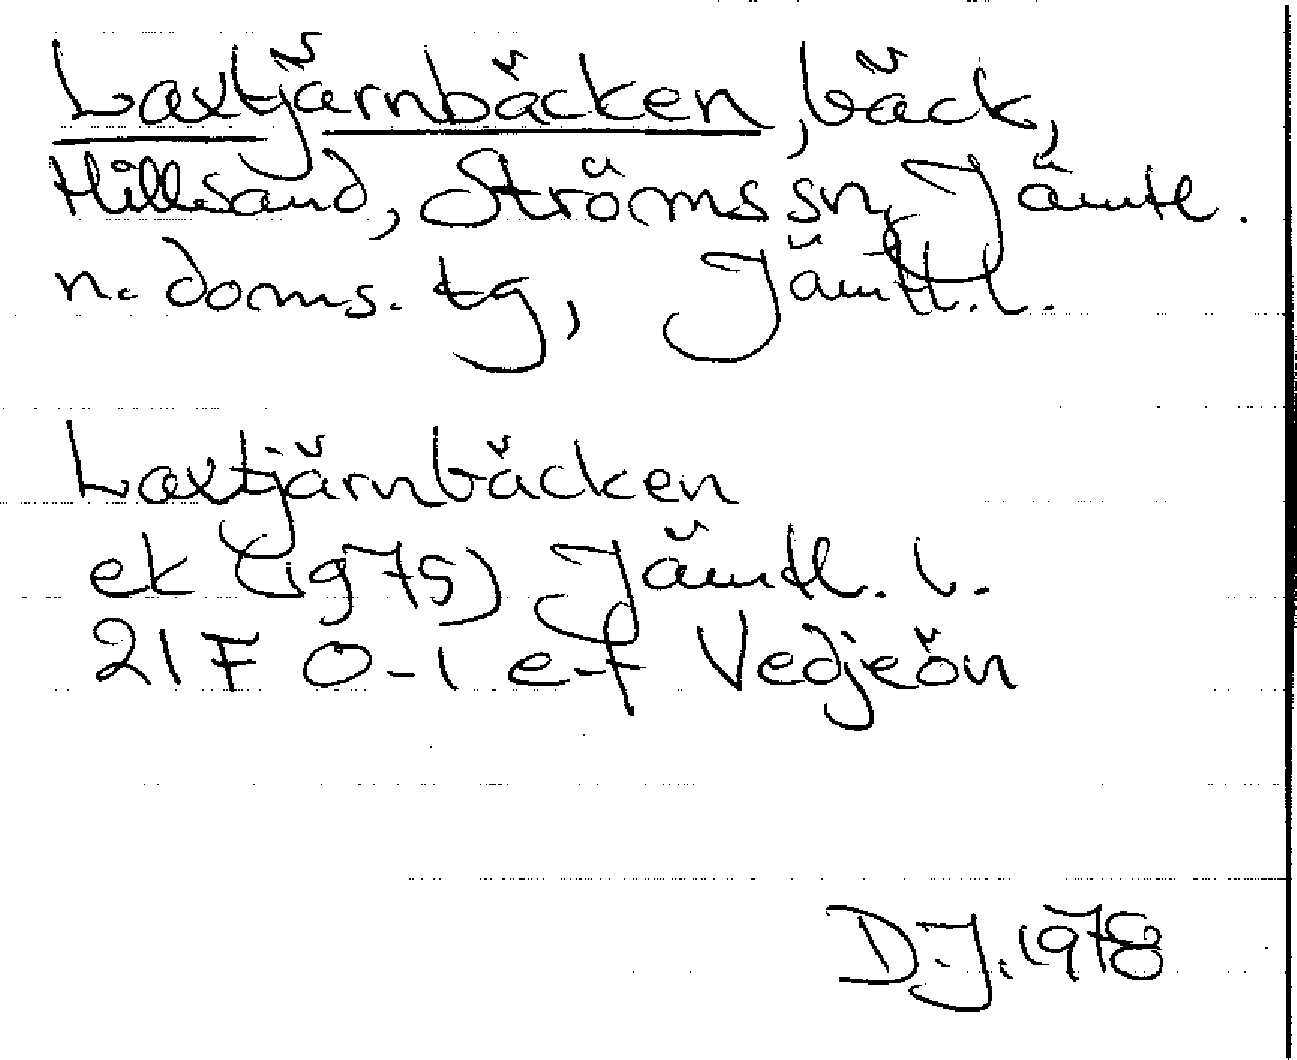 Laxtjärnbäcken, bäck,
Hillsand, Ströms sn, Jämtl.
n. doms. tg, Jämtl. l.
Laxtjärnbäcken
ek (1975) Jämtl. l.
21 F 0-1 e-f Vedjeön
D.J. 1978